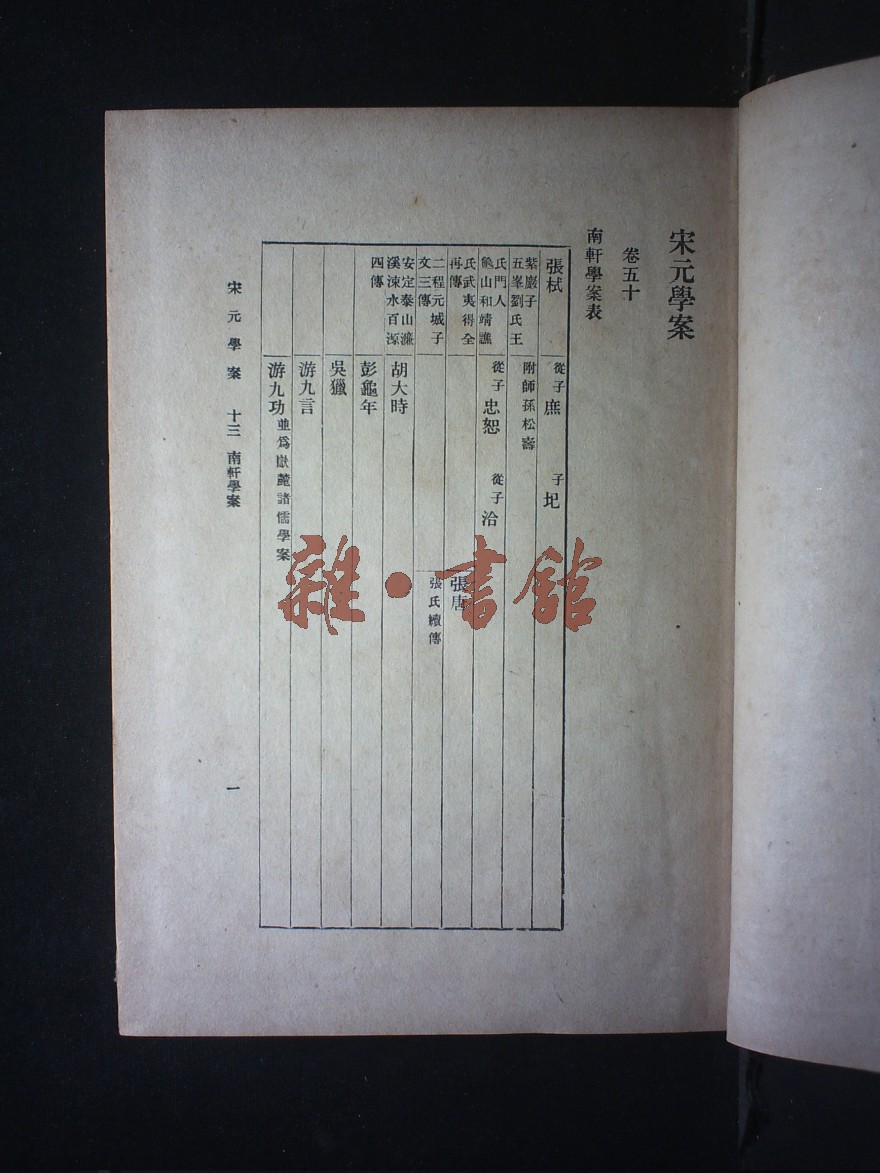 宋元學案
卷五十
南軒學案表
張栻
紫巖子
五峯劉氏王
氏門人
龜山和靖譙
氏武夷得全
再傳
二程元城子
文三傳
安定泰山濂
溪涑水百源
四傳
子
圯
從子
庶
附師孫松壽
從子
忠恕
從子
洽
張唐
張氏續傳
胡大時
彭龜年
吳獵
游九言
游九功
並爲嶽麓諸儒學案
宋元學案 十三 南軒學案
一
雜·書館